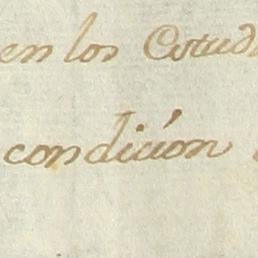 en los Estud
condición